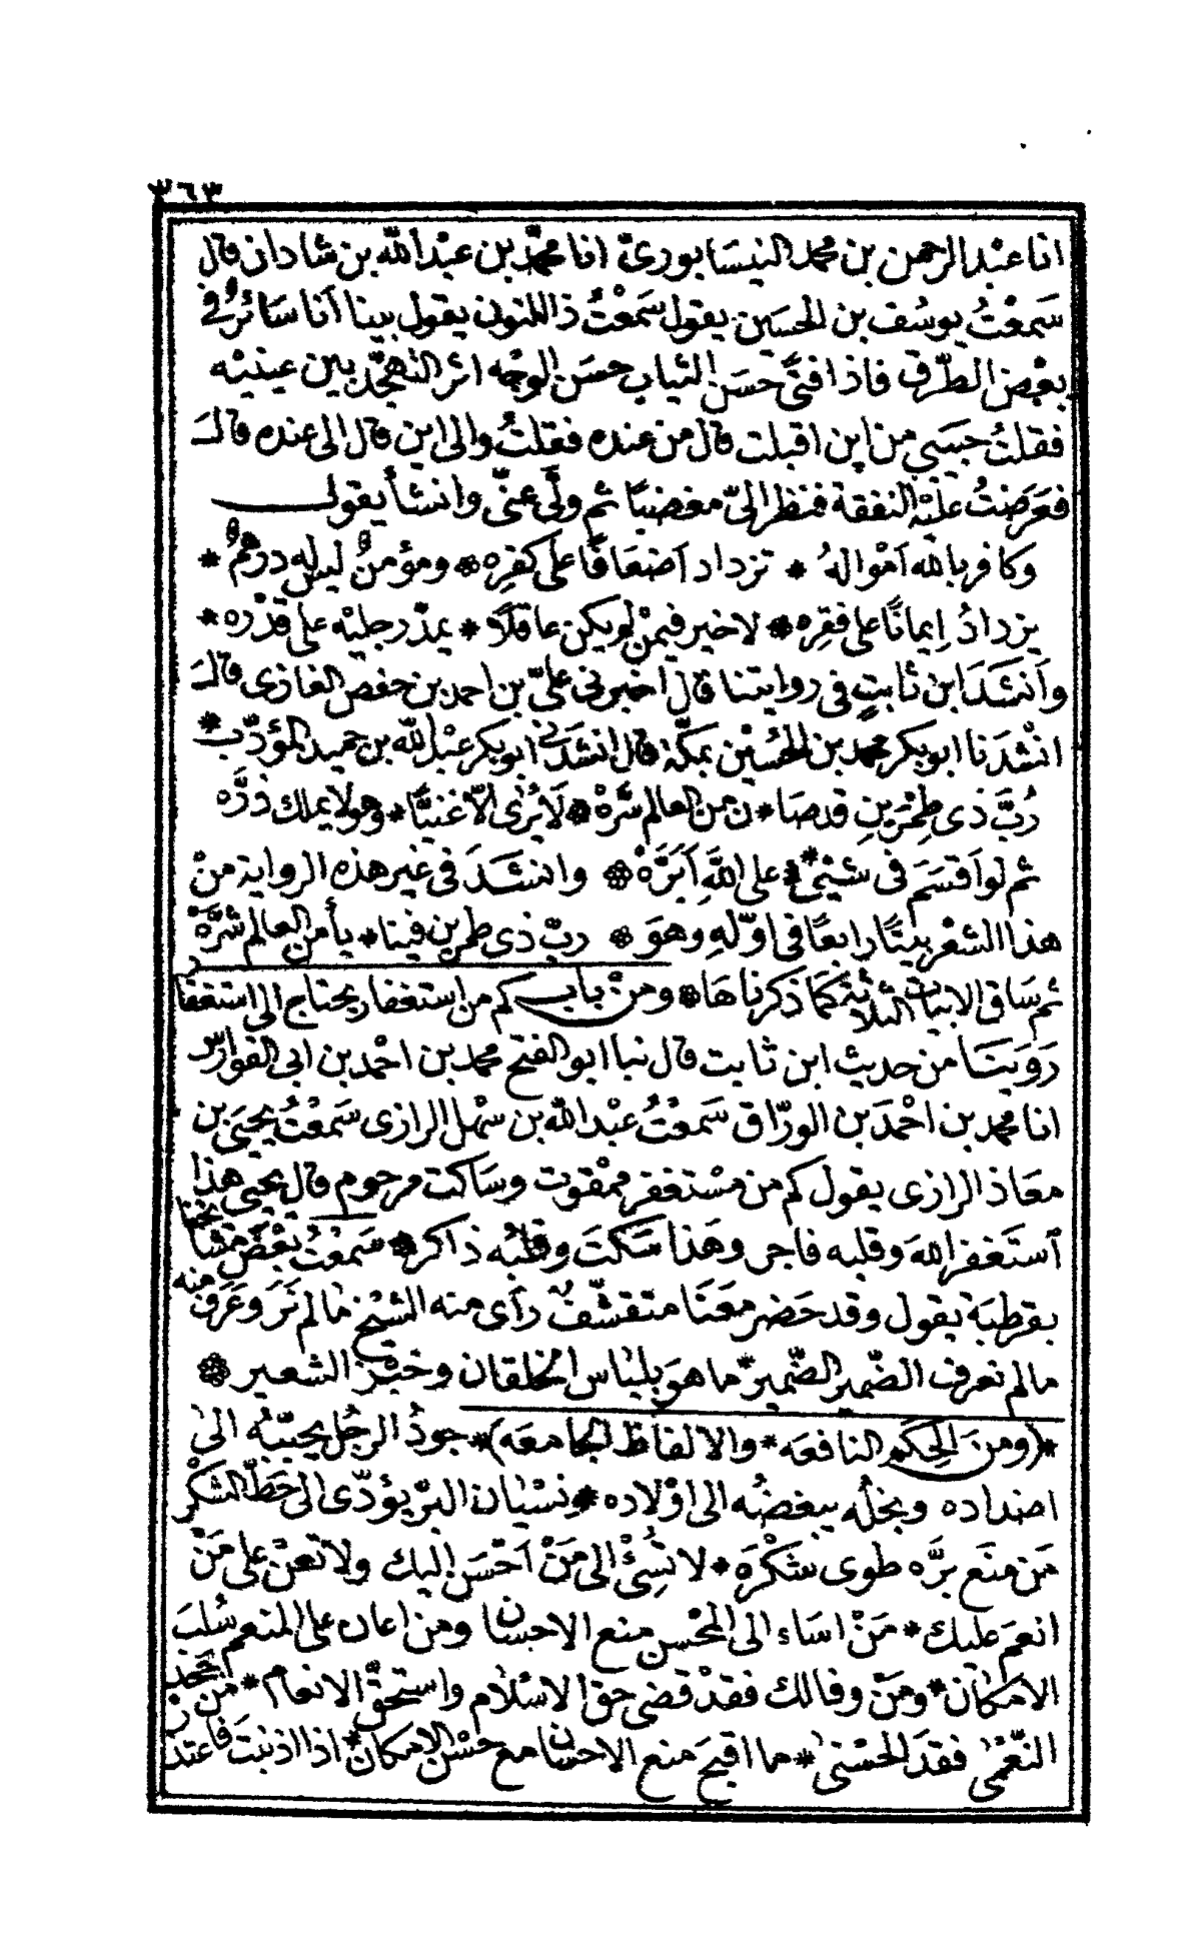 ٣٦٣
انا عبْد الرحمن بن محمد النيسَابورىّ انا محمّد بن عبْد اللّه بن شادان قال
سَمعْتُ يوسُف بن الحسَين يقول سَمعْتُ ذا النون يقول بينا أنا سَائرٌ فى
بعْض الطّرق فاذا فتًى حسَن الثياب حسَن الوجْه اثر التهجّد بين عينيْه
فقلتُ حبيبى من اين اقبلت قال من عنده فقلتُ والى اين قال الى عنده قال
فعَرضتُ عليْه النفقة فنظر الىّ مغضبًا ثم ولَّى عنّى وانشأ يقول
وكافر بالله اَمْوالهُ * تزداد اَضعَافًا على كفرِه * ومؤمنٌ ليس له درْهمٌ *
يزدادُ اِيمانًا على فقرِه * لا خير فيمنْ لم يكن عاقلًا * يمدّ رجليْه على قدْره *
واَنشَدَ ابن ثابتٍ فى روايتنا قال اخبرنى علىّ بن احمد بن حفص الغازى قال
انْشدَنا ابو بكر محمد بن الحسيْن بمكّة قال انشدَنى ابو بكر عبْد اللّه بن حميد المؤدّب *
رُبَّ ذى طِمْرَينِ قد صَا * ن من العالم سَرّهْ * لَا يُرٰى الّا غنيًّا * وهو لا يملك ذرَّه
ثم لو اَقسَم فى شيْءٍ * على اللَّهِ اَبَرَّهْ * وانشَدَ فى غير هذه الرواية منْ
هذا الشعْر بيتًا رابعًا فى اوّلهِ وهوَ * ربّ ذى طمرين فينا * يأمن العالم شرَّهْ
ثم سَاق الابيات الثلاثة كمَا ذكرناهَا * ومنْ باب كم من استغفار يحتاج الى استغفار
رَوَيْنَا من حديث ابن ثابت قال نبا ابو الفتح محمد بن احْمد بن ابى الفوارس
انا محمد بن احْمَد بن الورّاق سَمعْتُ عبْد اللّه بن سهْل الرازى سَمعْتُ يحيَى بن
معَاذ الرازى يقول كم من مسْتغفر ممْقوت وسَاكت مرحوم قال يحيى هذا
اَستَغفر اللّه وقلبه فاجر وهَذا سَكتَ وقلبُه ذاكر * سَمعْتُ بعْض مشايخنا
بقرطبَة يقول وقد حَضر معَنَا متقشّفٌ رأى منه الشيْخ ما لم نَرَ وعَرَف منه
ما لم نعرف الضّمير الضّمير * ما هوَ بلباس الخلقان وخبْز الشعير *
*(ومنَ الحِكم النافعَه * والالفاظ الجامعَه)* جودُ الرجُل يحبّبُه الى
اضداده وبخلُه يبغضُه الى اوْلاده * نِسْيان البّر يؤدّى الى حَظّ الشكْر
مَن منَع برَّه طوى شكْرَه * لا تُسِئْ الى مَنْ اَحْسَن اليك ولا تعنْ على مَنْ
انعمَ عليك * مَنْ اسَاء الى المحْسِن منع الاحسان ومن اعان على المنعم سُلبَ
الامكان * ومَنْ وفا لك فقدْ قضى حق الاسْلام واستحقّ الانعام * من جحد
النّعْمٰى فقدَ الحسْنٰى * ما اقبحَ منع الاحسان مع حسْن الامكان * اذا اذنبتَ فاعتذر